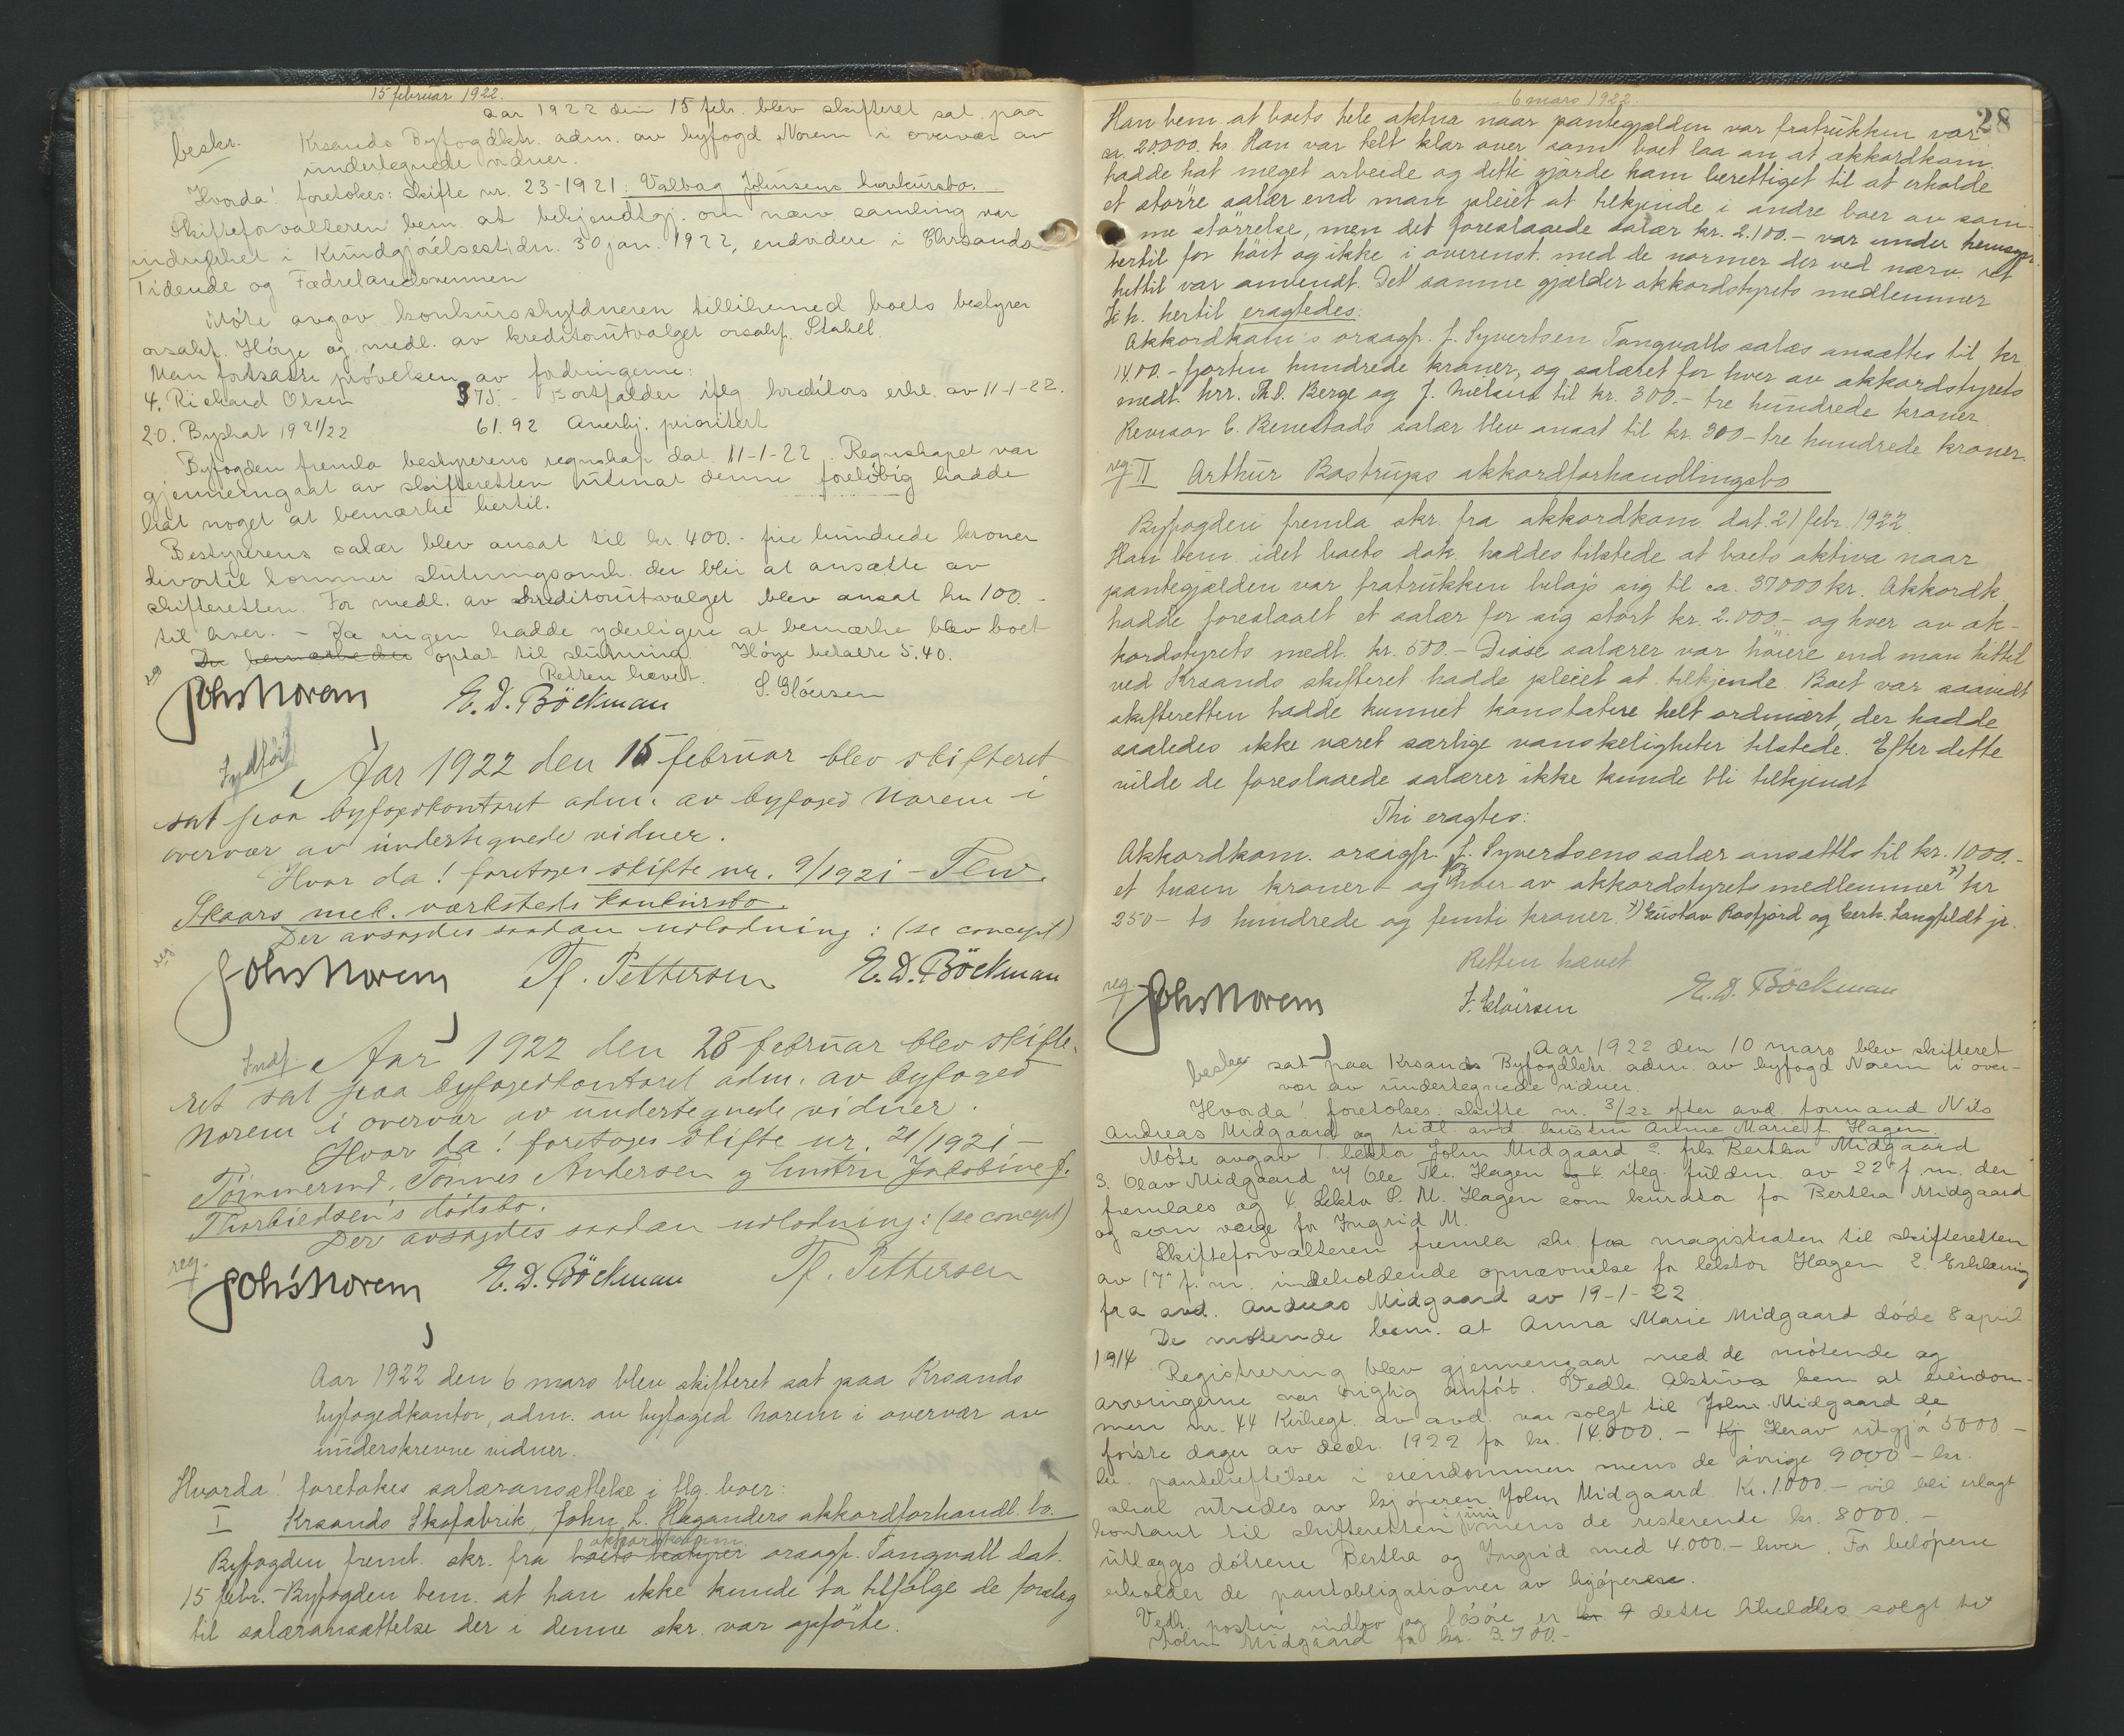 15 februar 1922.
Aar 1922 den 15 febr. blev skifteret sat paa
beskr.
Krsands Byfogdktr. adm. av byfogd Norem i overvær av
undertegnede vidner.
Hvorda! foretokes: Skifte nr. 23-1921: Valbag Johnsens konkursbo.
Skifteforvalteren bem. at bekjendtgj. om nærv. samling var
indrykket i Kundgjörelsestidn. 30 jan. 1922, endvidere i Chrsands
Tidende og Fædrelandsvennen
Möte avgav konkursskyldneren tillikemed boets bestyrer
orsakf. Hörje og medl. av kreditorutvalget orsakf. Stabell.
Man fortsatte prövelsen av fordringerne:
4. Richard Olsen 375.- Bortfalder iflg kreditors erkl. av 11-1-22.
20. Byskat 1921/22 61.92 Anerkj. prioritert
Byfogden fremla bestyrerens regnskap dat. 11-1-22. Regnskapet var
gjennemgaat av skifteretten utenat denne foreløbig hadde
hat noget at bemærke hertil.
Bestyrerens salær blev ansat til kr. 400.- fire hundrede kroner
hvortil kommer slutningsomk. der blir at ansætte av
skifteretten. For medl. av kreditorutvalget blev ansat kr 100.-
til hver. - Da ingen hadde yderligere at bemærke blev boet
Da bemærkedes optat til slutning. Hörje betalte 5.40.
Retten hævet.
reg
Johs Norem E. D. Böckman S. Glöersen
Indfört
Aar 1922 den 15 februar blev skifteret
sat paa byfogedkontoret adm. av byfoged Norem i
overvær av undertegnede vidner.
Hvor da! foretoges skifte nr. 9/1921 - Flw.
Skaars mek. værksteds konkursbo.
Der avsagdes saadan utlodning: (se concept)
reg
Johs Norem Tf. Pettersen E. D. Böckman
Indf.
Aar 1922 den 28 februar blev skifte-
ret sat paa byfogedkontoret adm. av byfoged
Norem i overvær av undertegnede vidner.
Hvor da! foretoges skifte nr. 21/1921 -
Tömmermd. Tönnes Andersen og hustru Jakobine f.
Thorbiedsen's dödsbo.
Der avsagdes saadan utlodning: (se concept)
reg.
Johs Norem E. D. Böckman Tf. Pettersen
Aar 1922 den 6 mars blev skifteret sat paa Krsands
byfogedkontor, adm. av byfoged Norem i overvær av
underskrevne vidner.
Hvorda! foretokes salæransættelse i flg. boer:
I Krsands Skofabrik, John L. Haganders akkordforhandl. bo.
akkordkom.
Byfogden freml. skr. fra boets bestyrer orsagf. Tangvall dat.
15 febr. - Byfogden bem. at han ikke kunde ta tilfølge de forslag
til salæransættelse der i denne skr. var opförte.
6 mars 1922.
28
Han bem. at boets hele aktiva naar pantegjælden var fratrukken var
ca. 20.000. kr. Han var helt klar over som boet laa an at akkordkom.
hadde hat meget arbeide og dette gjorde ham berettiget til at erholde
et större salær end man pleiet at tilkjende i andre boer av sam-
me störrelse, men det foreslaaede salær kr. 2.100.- var under hensyn
hertil for höit og ikke i overenst. med de normer der ved nærv. ret
hittil var anvendt. Det samme gjælder akkordstyrets medlemmer
Ti h. hertil eragtedes:
Akkordkom's orsagf. J. Syvertsen Tangvalls salær ansættes til kr.
1400.- fjorten hundrede kroner, og salæret for hver av akkordstyrets
medl. hrr. Th. O. Berge og J. Nielsen til kr. 300.- tre hundrede kroner.
Revisor C. Benestads salær blev ansat til kr. 300 - tre hundrede kroner.
reg. II Arthur Bostrups akkordforhandlingsbo
Byfogden fremla skr. fra akkordkom. dat. 21 febr. 1922
Han bem. idet boets dok. haddes tilstede at boets aktiva naar
pantegjælden var fratrukken beløp sig til ca. 37000 kr. Akkordk.
hadde foreslaalt et salær for sig stort kr. 2.000,- og hver av ak-
kordstyrets medl. kr. 500.- Disse salærer var höiere end man hittil
ved Krsands skifteret hadde pleiet at tilkjende. Boet var saavidt
skifteretten hadde kunnet konstatere helt ordinært, der hadde
saaledes ikke været særlige vanskeligheter tilstede. Efter dette
vilde de foreslaaede salærer ikke kunde bli tilkjendt
Thi eragtes:
Akkordkom. orsagf. J. Syvertsens salær ansættes til kr. 1000.-
et tusen kroner - og for hver av akkordstyrets medlemmer x) kr
250 - to hundrede og femti kroner. x) Gustav Rosfjord og Gerh. Langfeldt jr.
Retten hævet
reg.
Johs Norem S. Glöersen E. D. Böckman
Aar 1922 den 10 mars blev skifteret
beskr
sat paa Krsands Byfogdktr. adm. av byfogd Norem i over-
vær av undertegnede vidner.
Hvorda! foretokes: skifte nr. 3/22 efter avd. formand Nils
Andreas Midgaard og tidl. avd. hustru Anne Marie f. Hagen.
Möte avgav 1. lektor John Midgaard 2. frk Bertha Midgaard
3. Olav Midgaard v/ Ole Th. Hagen og 4. iflg. fuldm. av 22 f. m. der
fremlaes og 4. Lektor S. M. Hagen som kurator for Bertha Midgaard
og som værge for Ingrid M.
Skifteforvalteren fremla skr. fra magistraten til skifteretten
av 17 f. m. indeholdende opnævnelse for lektor Hagen 2. Erklæring
fra avd. Andreas Midgaard av 19-1-22
De mötende bem. at Anna Marie Midgaard döde 8 april
1914
Registrering blev gjennemgaat med de mötende og
arvingerne var rigtig anfört. Vedk. Aktiva bem. at eiendom-
men nr. 44 Kirkegt. av avd. var solgt til John Midgaard de
förste dager av decbr. 1922 for kr. 14.000.- Kj Herav utgjø 5000 -
kr. pantehæftelser i eiendommen mens de övrige 9000 - kr.
skal utredes av kjöperen John Midgaard. Kr. 1.000.- vil bli erlagt
kontant til skifteretten i juni mens de resterende kr. 8000.-
utlægges döttrene Bertha og Ingrid med 4.000.- hver. For belöpene
erholder de pantobligationer av kjöperen.
Vedr. posten indbo og lösöre er dette likeledes solgt til
John Midgaard for kr. 3.700.-